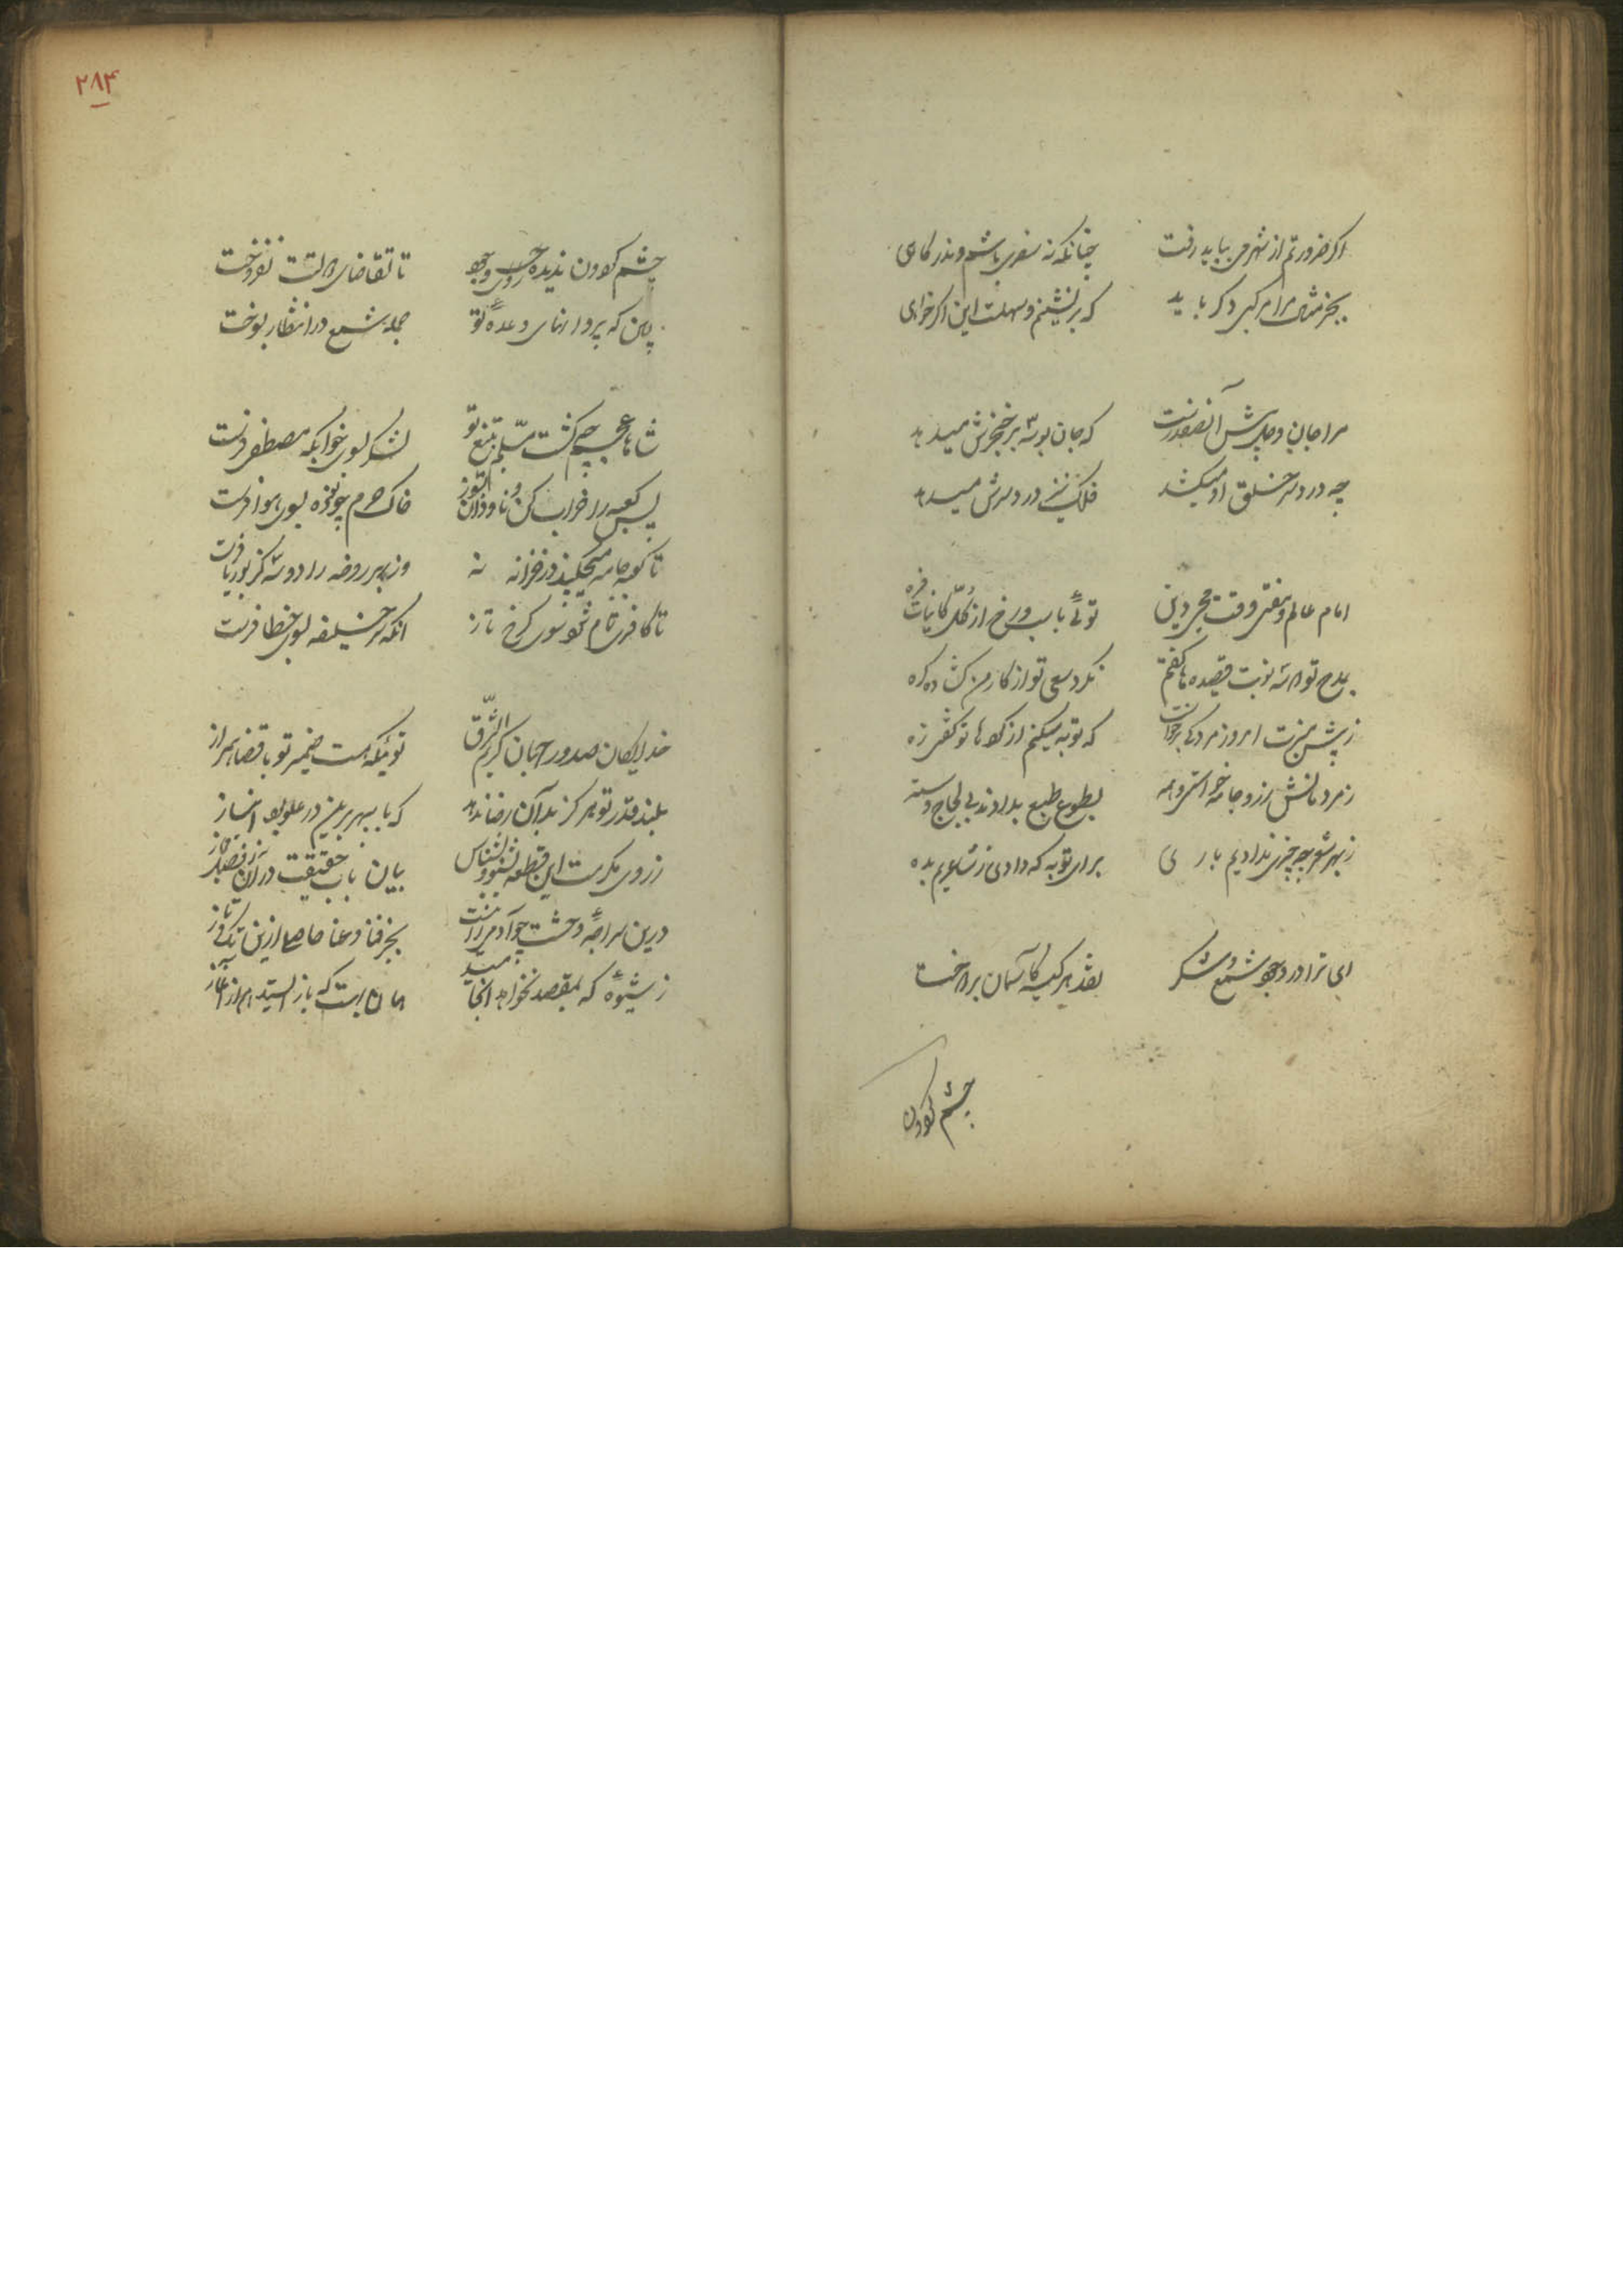 اکر ضرورتم از شهر می بباید رفت چنانکه نه سفری باشم و نه در کاهی
بجز مرا مرکبی دکر باید که برنشینم و سهلست این اکر خواهی
مرا جان و جانبش آنصورتست که جان بوسه بر خنجرش میدهد
چه دردسر خلق او میکشد فلک نیز دردسرش میدهد
امام عالم و مفتی وقت محیی دین توئی از کل کائنات فره
بمدح تو سه نوبت قصیده ها کفتم نکرد سعی تو از کار من کشاده کره
ز پیش منبرت امروز مردکی برخاست که توبه میکنم از کناه تو کفتی زه
ز مردمانش زر و جامه خواستی و همه بطوع طبع بدادند بی لجاج و سته
ز بهر شعر چو چیزی ندادیم باری برای توبه که دادی ز شاعریم بده
ای ترا در وجود شمع و شکر نقد هر کیسه کآسمان پرداخت
چشم کردون
۲۸۴
چشم کردون ندیده روی وجود تا تقاضای نفروخت
که پروانهای وعده تو جمله شمع در انتظار بسوخت
شاها عجم چو کشت مسلم بتیغ تو لشکر بسوی خوابکه مصطفی فرست
پس کعبه را خراب کن و خاک حرم چو ذره بسوی هوا فرست
تا کعبه جامه میچکند در خزانه نه وز بهر روضه را دوسه کز بوریا فرست
تا کافر تمام شوی سوی کرخ تاز آنکه سر خلیفه بسوی خطا فرست
خدایکان صدور جهان کریم الشرق توئیکه هست ضمیر تو با قضا همراز
بلند قدر تو هرکز بدان رضا ندهد که با سپهر برین در علو بود انباز
ز روی مکرمت این قطعه بشنو و بشناس بیان باب حقیقت در آن ز فصل مجاز
درین سراچه وحشت چو آدمی زادست بجز فنا و عنا حاصلی ازین تک و تاز
ز شیوه که بمقصد نخواهد انجامید همان بهست که باز ایستد هم از آغاز